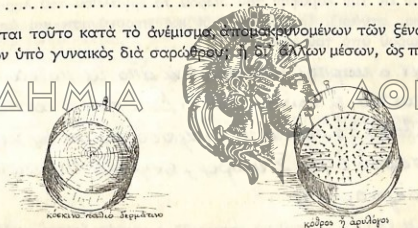 ται τοῦτο κατὰ τὸ ἀνέμισμα, ἀπομακρυνομένων τῶν ξένα
ων ὑπὸ γυναικὸς διὰ σαρώθρου; ἢ δι' ἄλλων μέσων, ὡς π
ΔΗΜΙΑ ΑΘΗ
κόσκινο παλιό δερμάτινο
κόθρος ἢ ἀρυλόγος